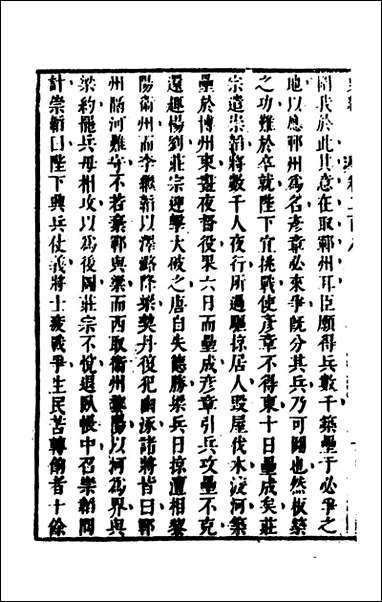 圖我於此其意在取鄆州耳臣願得兵數千築壘于必爭之
地以應鄆州爲名彥章必來爭旣分其兵乃可圖也然板築
之功難於卒就陛下宜挑戰使彥章不得東十日壘成矣莊
宗遣崇韜將數千人夜行所過驅掠居人毀屋伐木渡河築
壘於博州東晝夜督役果六日而壘成彥章引兵攻壘不克
還趨楊劉莊宗迎擊大破之唐自失德勝梁兵日掠澶相黎
陽衞州而李繼韜以澤潞降梁契丹復犯幽涿諸將皆曰鄆
州隔河難守不若棄鄆與梁而西取衞州黎陽以河爲界與
梁約罷兵毋相攻以爲後圖莊宗不悅退臥帳中召崇韜問
計崇韜曰陛下興兵仗義將士疲戰爭生民苦轉餉者十餘